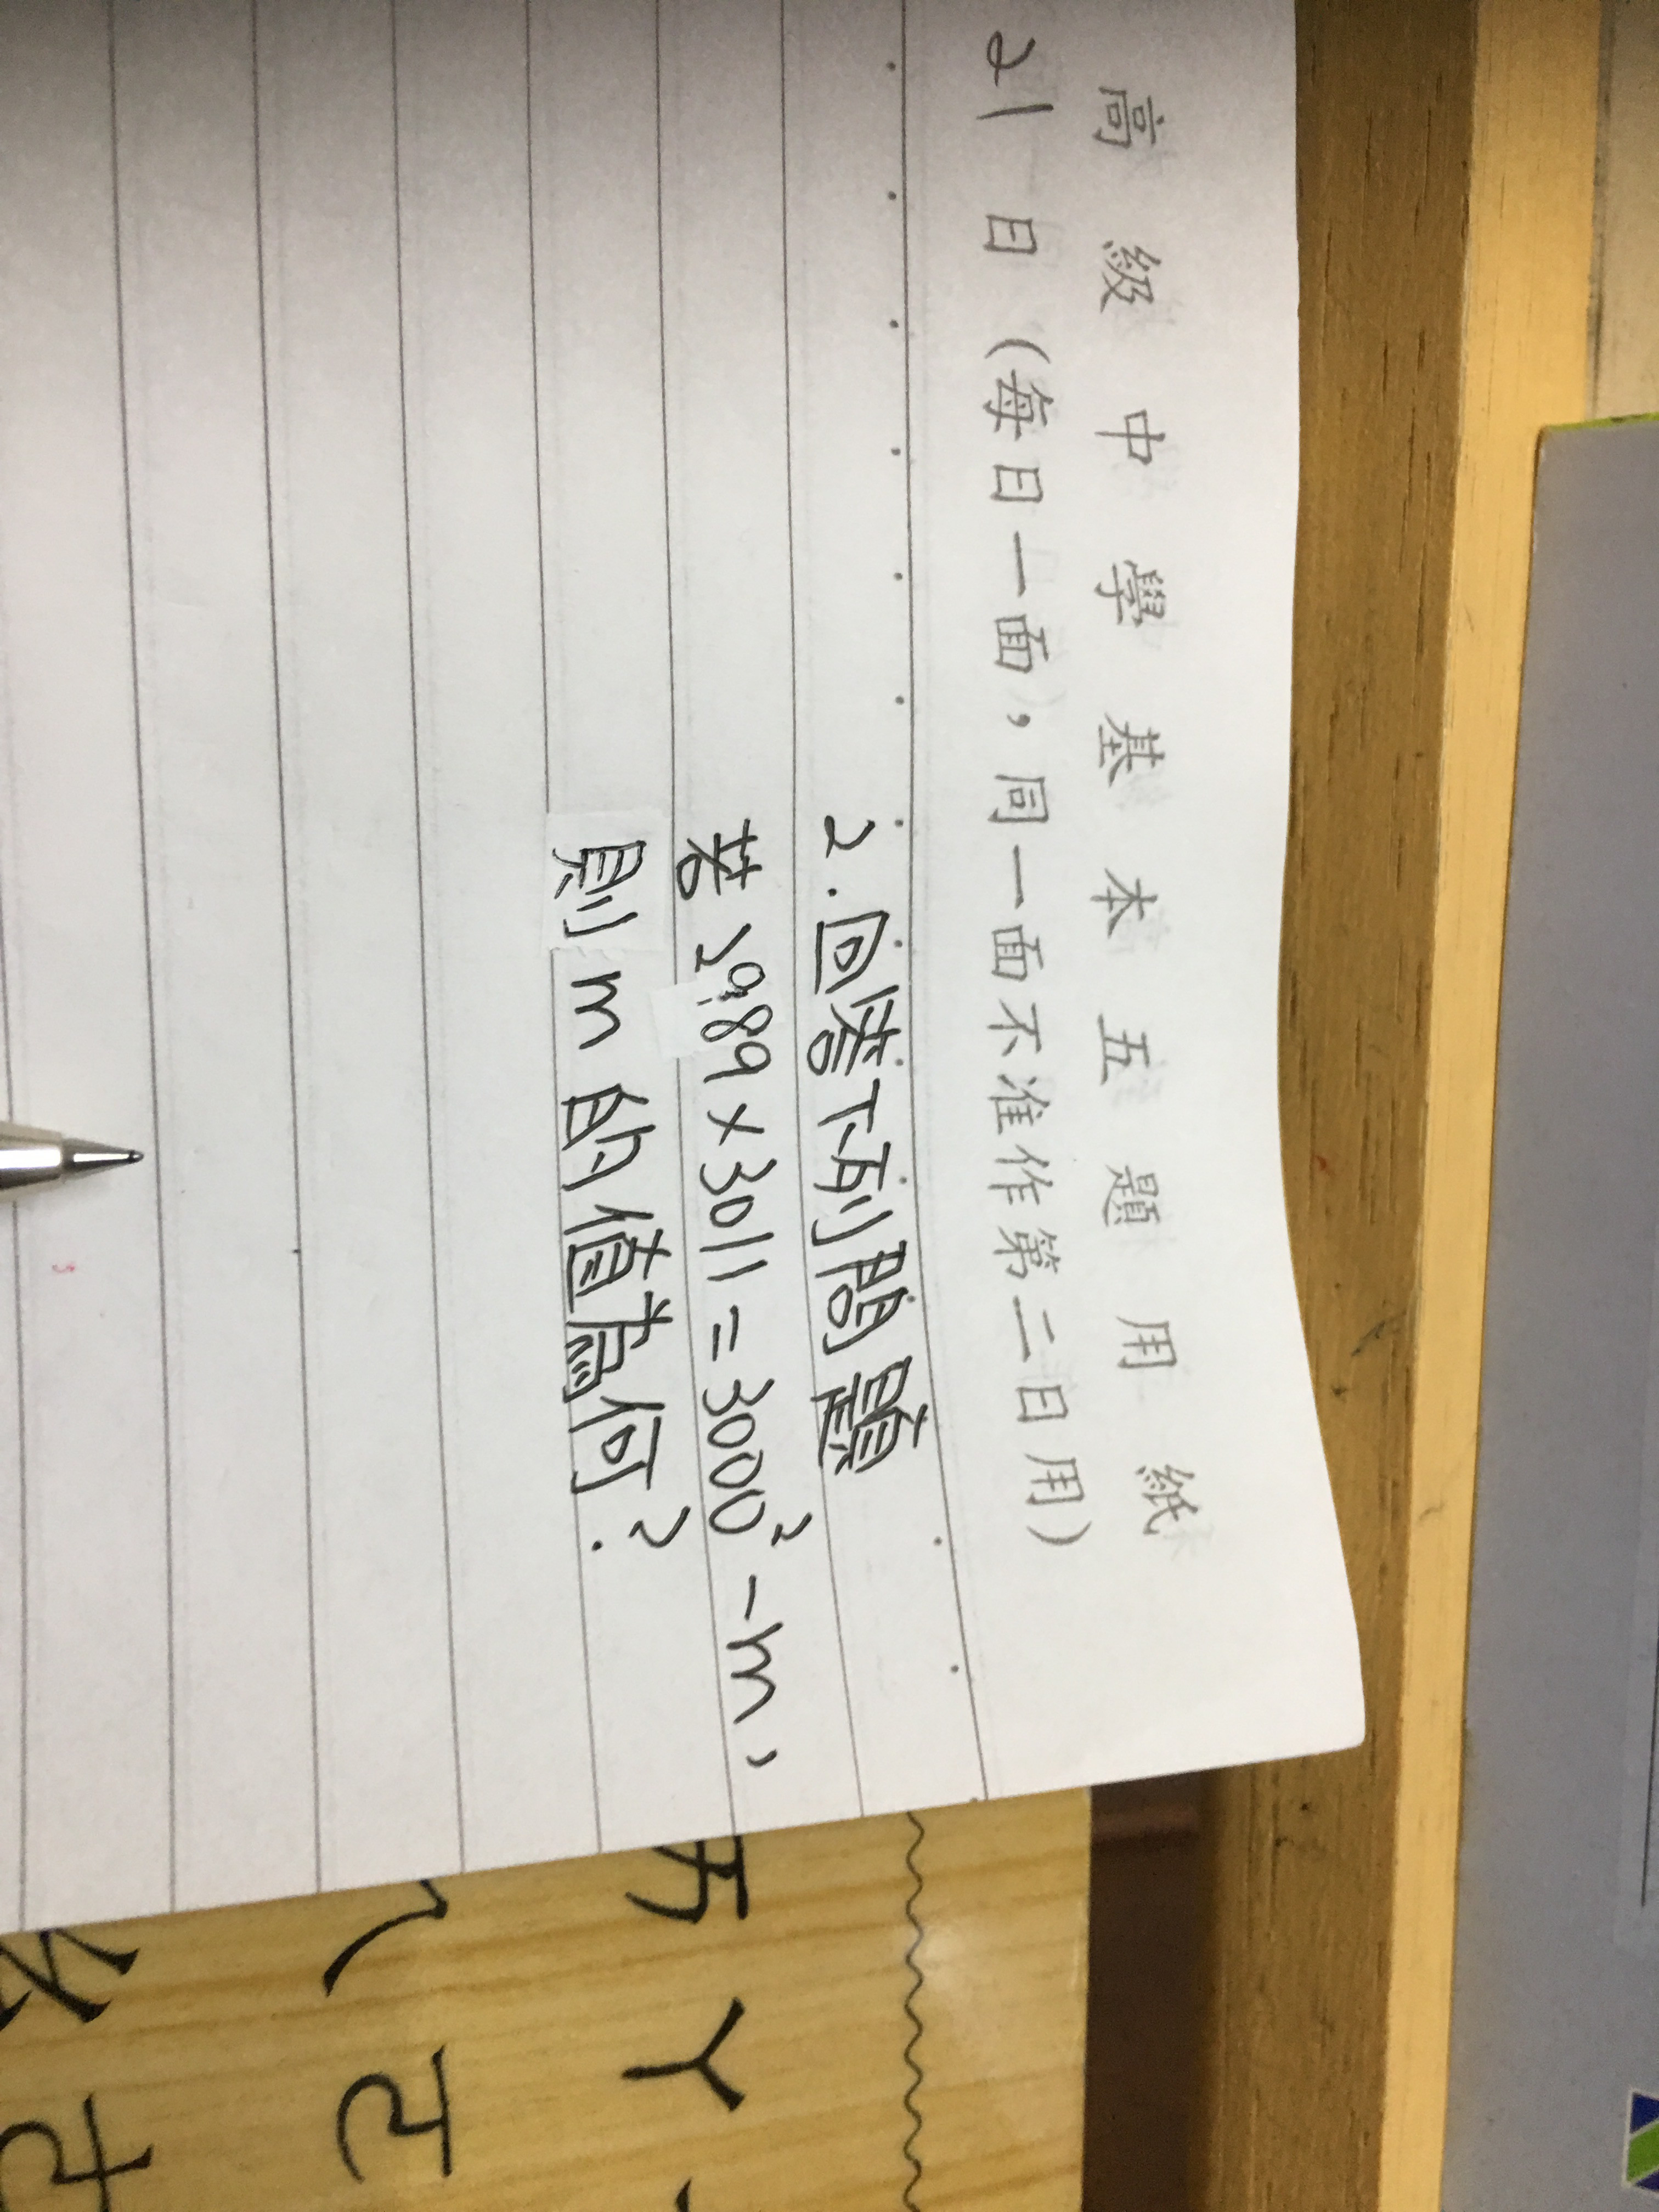 高級中學基本五題用紙
21日(每日一面,同一面不准作第二日用)
2.回答下列問題
若2989×3011=3000²-m,
則m的值為何?